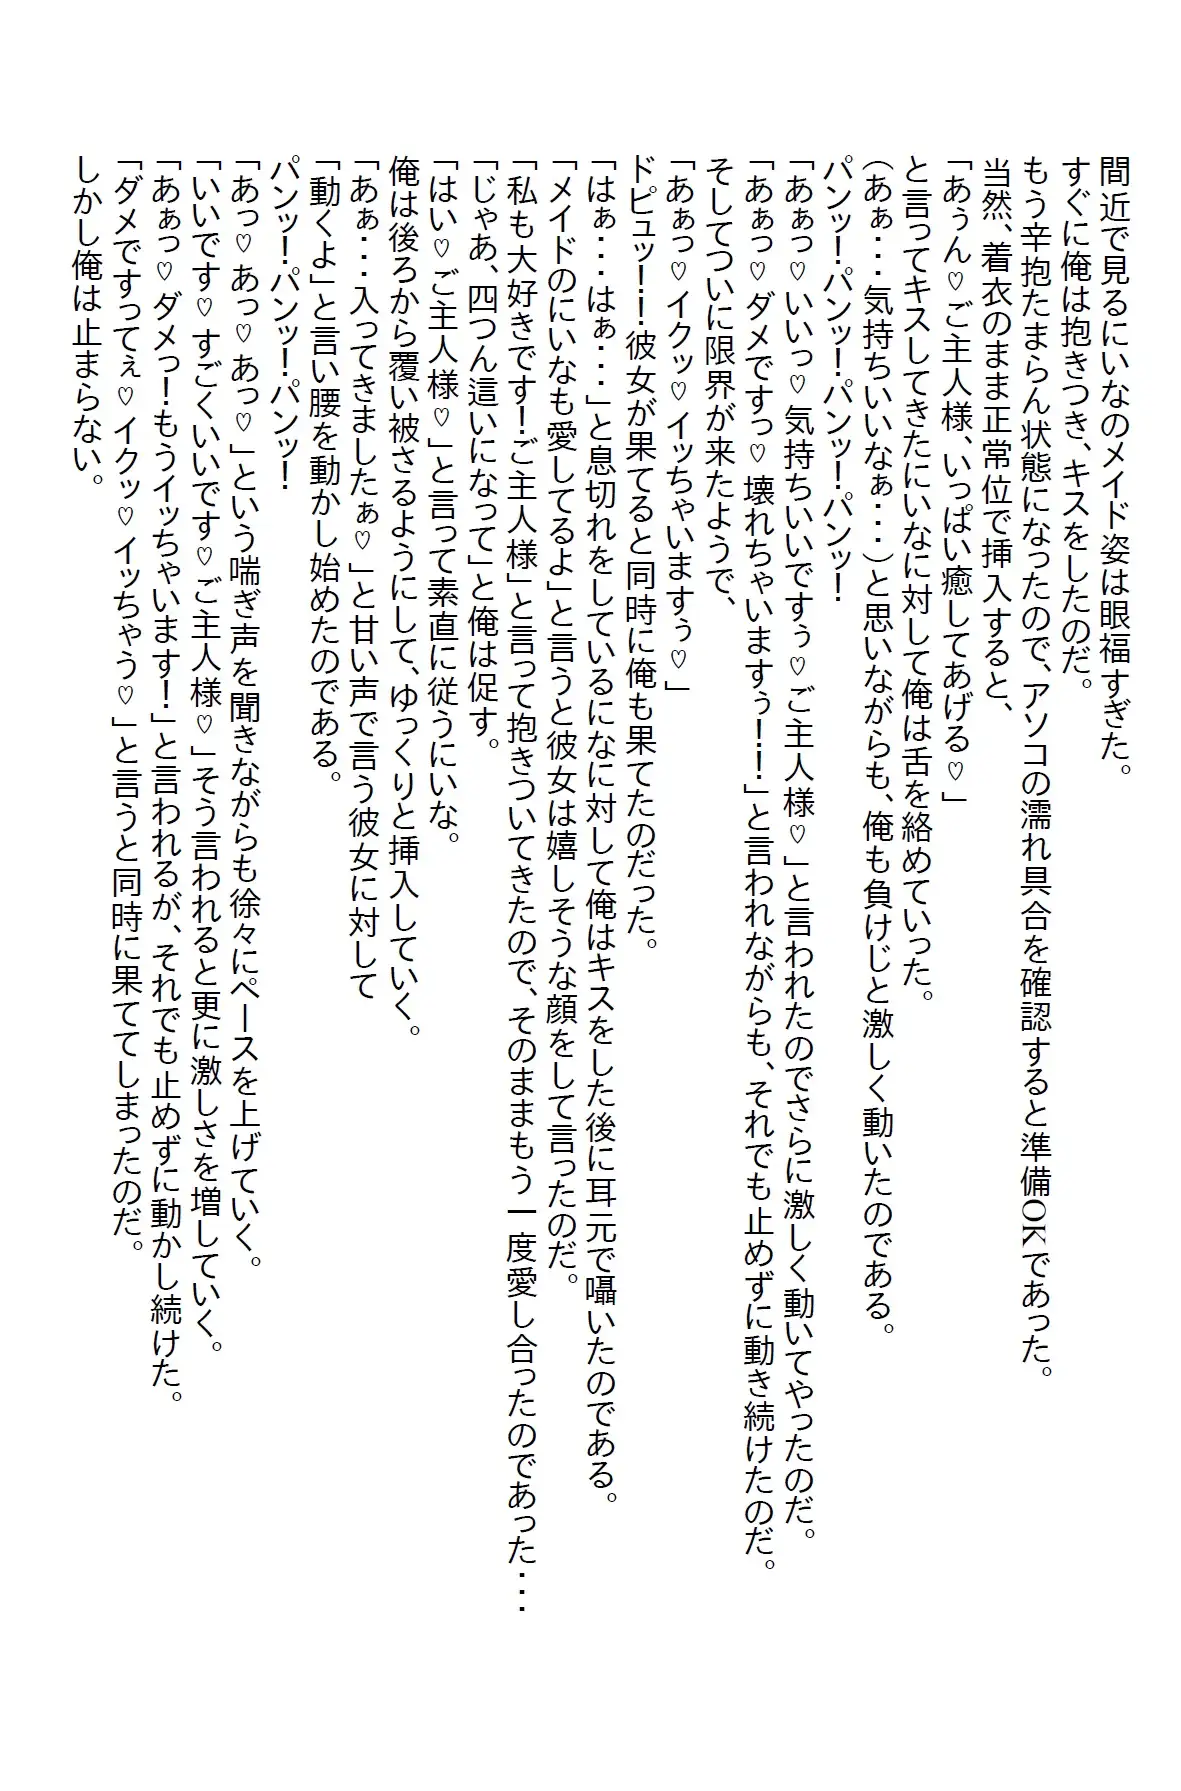 間近で見るにいなのメイド姿は眼福すぎた。
すぐに俺は抱きつき、キスをしたのだ。
もう辛抱たまらん状態になったので、アソコの濡れ具合を確認すると準備OKであった。
当然、着衣のまま正常位で挿入すると、
「あぅん♡ご主人様、いっぱい癒してあげる♡」
と言ってキスしてきたにいなに対して俺は舌を絡めていった。
(あぁ・・・気持ちいいなぁ・・・)と思いながらも、俺も負けじと激しく動いたのである。
パンッ！パンッ！パンッ！パンッ！
「あぁっ♡いいっ♡気持ちいいですぅ♡ご主人様♡」と言われたのでさらに激しく動いてやったのだ。
「あぁっ♡ダメですっ♡壊れちゃいますぅ！！」と言われながらも、それでも止めずに動き続けたのだ。
そしてついに限界が来たようで、
「あぁっ♡イクッ♡イッちゃいますぅ♡」
ドピュッ！！彼女が果てると同時に俺も果てたのだった。
「はぁ・・・はぁ・・・」と息切れをしているになに対して俺はキスをした後に耳元で囁いたのである。
「メイドのにいなも愛してるよ」と言うと彼女は嬉しそうな顔をして言ったのだ。
「私も大好きです！ご主人様」と言って抱きついてきたので、そのままもう一度愛し合ったのであった・・・
「じゃあ、四つん這いになって」と俺は促す。
「はい♡ご主人様♡」と言って素直に従うにいな。
俺は後ろから覆い被さるようにして、ゆっくりと挿入していく。
「あぁ・・・入ってきましたぁ♡」と甘い声で言う彼女に対して
「動くよ」と言い腰を動かし始めたのである。
パンッ！パンッ！パンッ！
「あっ♡あっ♡あっ♡」という喘ぎ声を聞きながらも徐々にペースを上げていく。
「いいです♡すごくいいです♡ご主人様♡」そう言われると更に激しさを増していく。
「あぁっ♡ダメっ！もうイッちゃいます！」と言われるが、それでも止めずに動かし続けた。
「ダメですってぇ♡イクッ♡イッちゃう♡」と言うと同時に果ててしまったのだ。
しかし俺は止まらない。